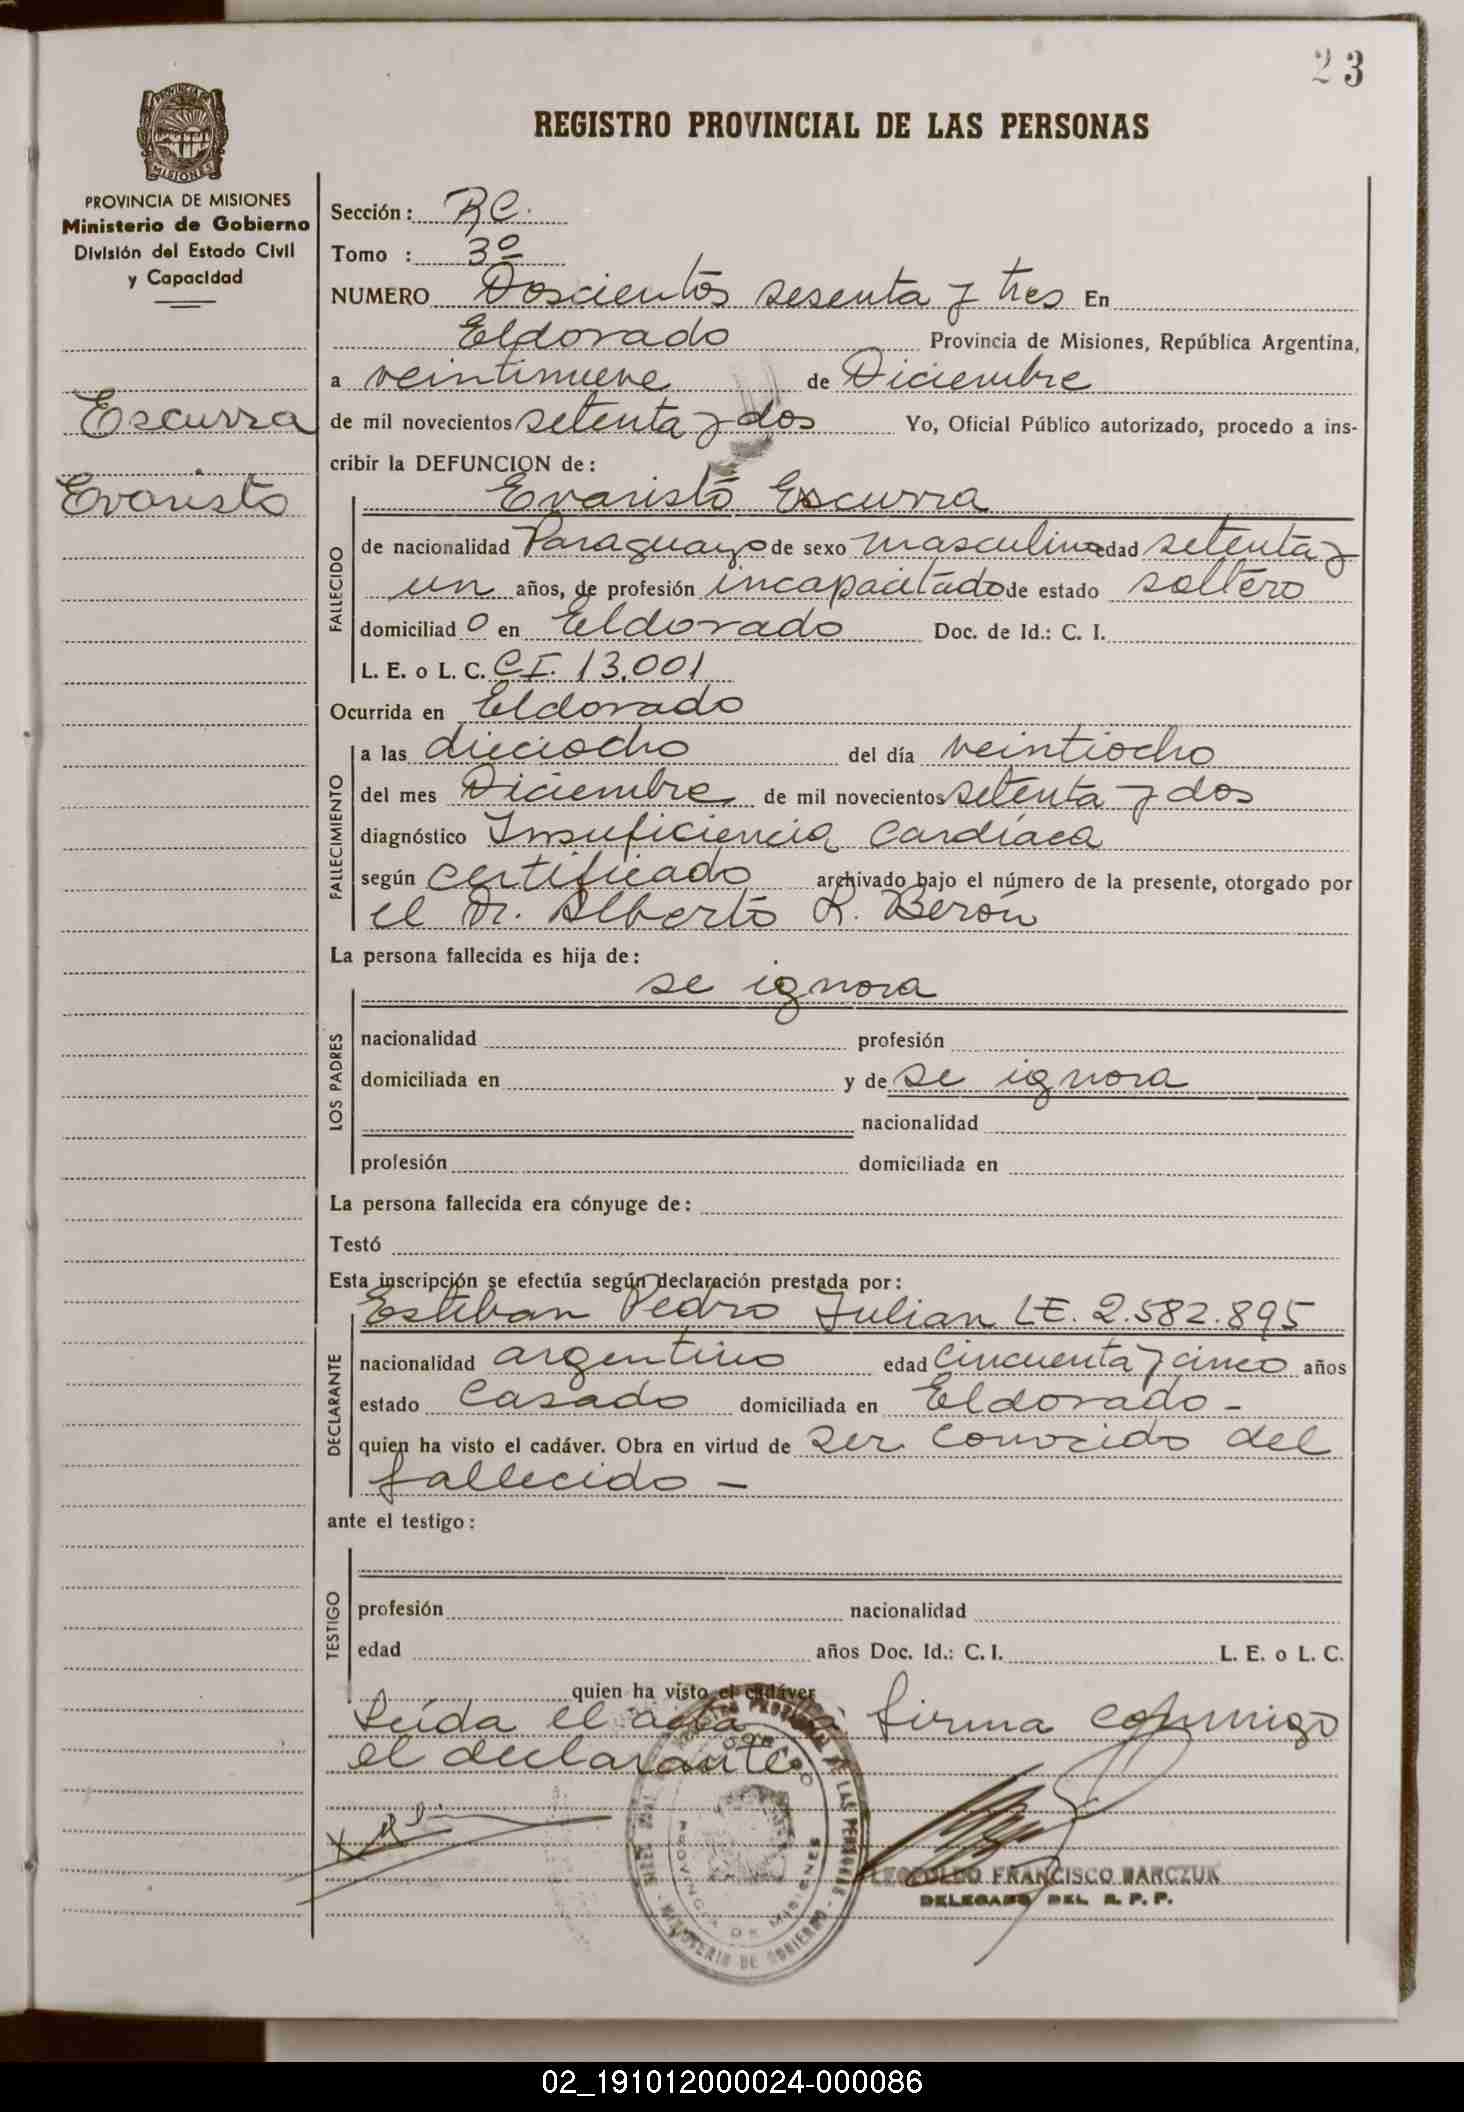 23
REGISTRO PROVINCIAL DE LAS PERSONAS
MISIONES
PROVINCIA DE MISIONES
Ministerio de Gobierno
División del Estado Civil
y Capacidad
Escurra
Evaristo
Sección: RC.
Tomo : 3º
NUMERO Doscientos sesenta y tres En
Eldorado Provincia de Misiones, República Argentina,
a veintinueve de Diciembre
de mil novecientos setenta y dos Yo, Oficial Público autorizado, procedo a ins-
cribir la DEFUNCION de:
FALLECIDO
Evaristo Escurra
de nacionalidad Paraguayo de sexo masculino edad setenta y
un años, de profesión incapacitado de estado soltero
domiciliad o en Eldorado Doc. de Id.: C. I.
L. E. o L. C. CI. 13.001
Ocurrida en Eldorado
FALLECIMIENTO
a las dieciocho del día veintiocho
del mes Diciembre de mil novecientos setenta y dos
diagnóstico Insuficiencia Cardíaca
según certificado archivado bajo el número de la presente, otorgado por
el Dr. Alberto R. Berón
La persona fallecida es hija de:
LOS PADRES
se ignora
nacionalidad profesión
domiciliada en y de se ignora
nacionalidad
profesión domiciliada en
La persona fallecida era cónyuge de:
Testó
Esta inscripción se efectúa según declaración prestada por:
DECLARANTE
Esteban Pedro Julian LE. 2.582.895
nacionalidad argentino edad cincuenta y cinco años
estado Casado domiciliada en Eldorado -
quien ha visto el cadáver. Obra en virtud de ser conocido del
fallecido -
ante el testigo:
TESTIGO
profesión nacionalidad
edad años Doc. Id.: C. I. L. E. o L. C.
quien ha visto el cadáver
Leída el acta firma conmigo
el declarante
PROVINCIA DE MISIONES
MINISTERIO DE GOBIERNO
LEOPOLDO FRANCISCO BARCZUK
DELEGADO DEL R. P. P.
02_191012000024-000086